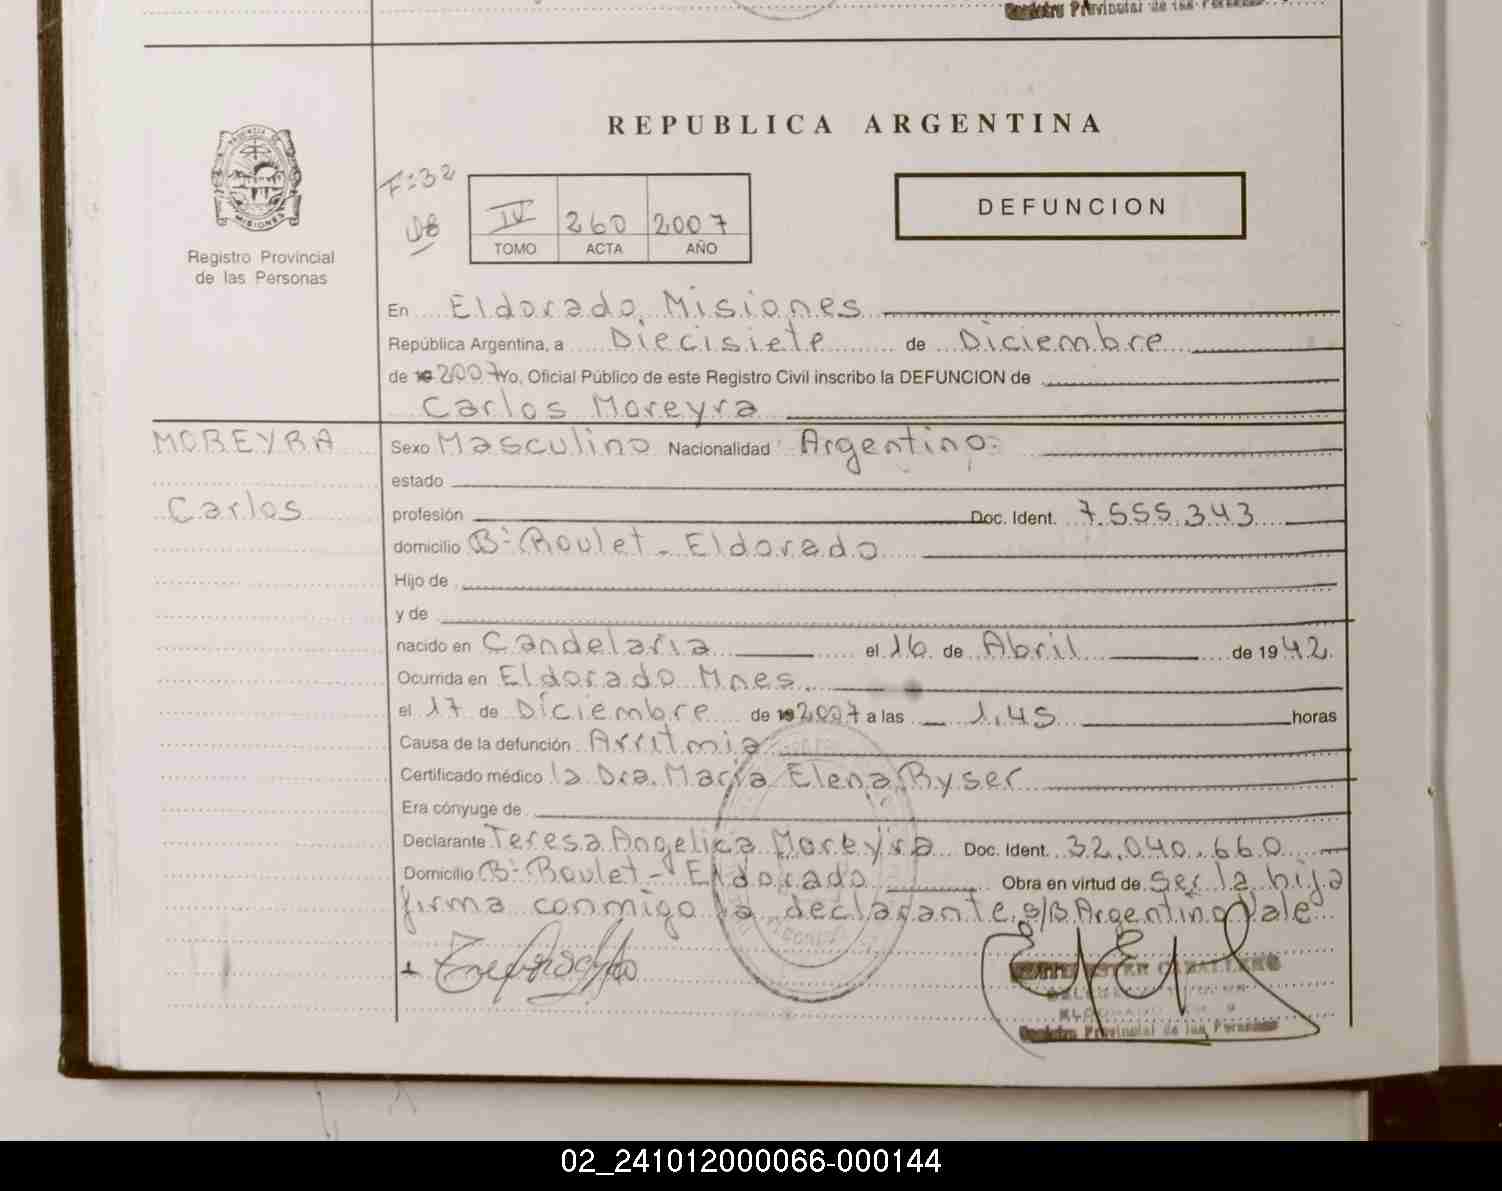 Registro Provincial de las Personas
REPUBLICA ARGENTINA
F:32
IV 260 2007
TOMO ACTA AÑO
DEFUNCION
Registro Provincial
de las Personas
En Eldorado, Misiones
República Argentina, a Diecisiete de Diciembre
de 19 2007 Yo, Oficial Público de este Registro Civil inscribo la DEFUNCION de
Carlos Moreyra
MOREYRA
Carlos
Sexo Masculino Nacionalidad Argentino
estado
profesión Doc. Ident. 7.555.343
domicilio Bº Roulet - Eldorado
Hijo de
y de
nacido en Candelaria el 16 de Abril de 1942.
Ocurrida en Eldorado Mnes.
el 17 de Diciembre de 19 2007 a las 1,45 horas
Causa de la defunción Arritmia
Certificado médico la Dra. María Elena Ryser
Era cónyuge de
Declarante Teresa Angelica Moreyra Doc. Ident. 32.040.660
Domicilio Bº Roulet - Eldorado Obra en virtud de Ser la hija
firma conmigo la declarante. s/B Argentino Vale
Registro Provincial de las Personas
02_241012000066-000144